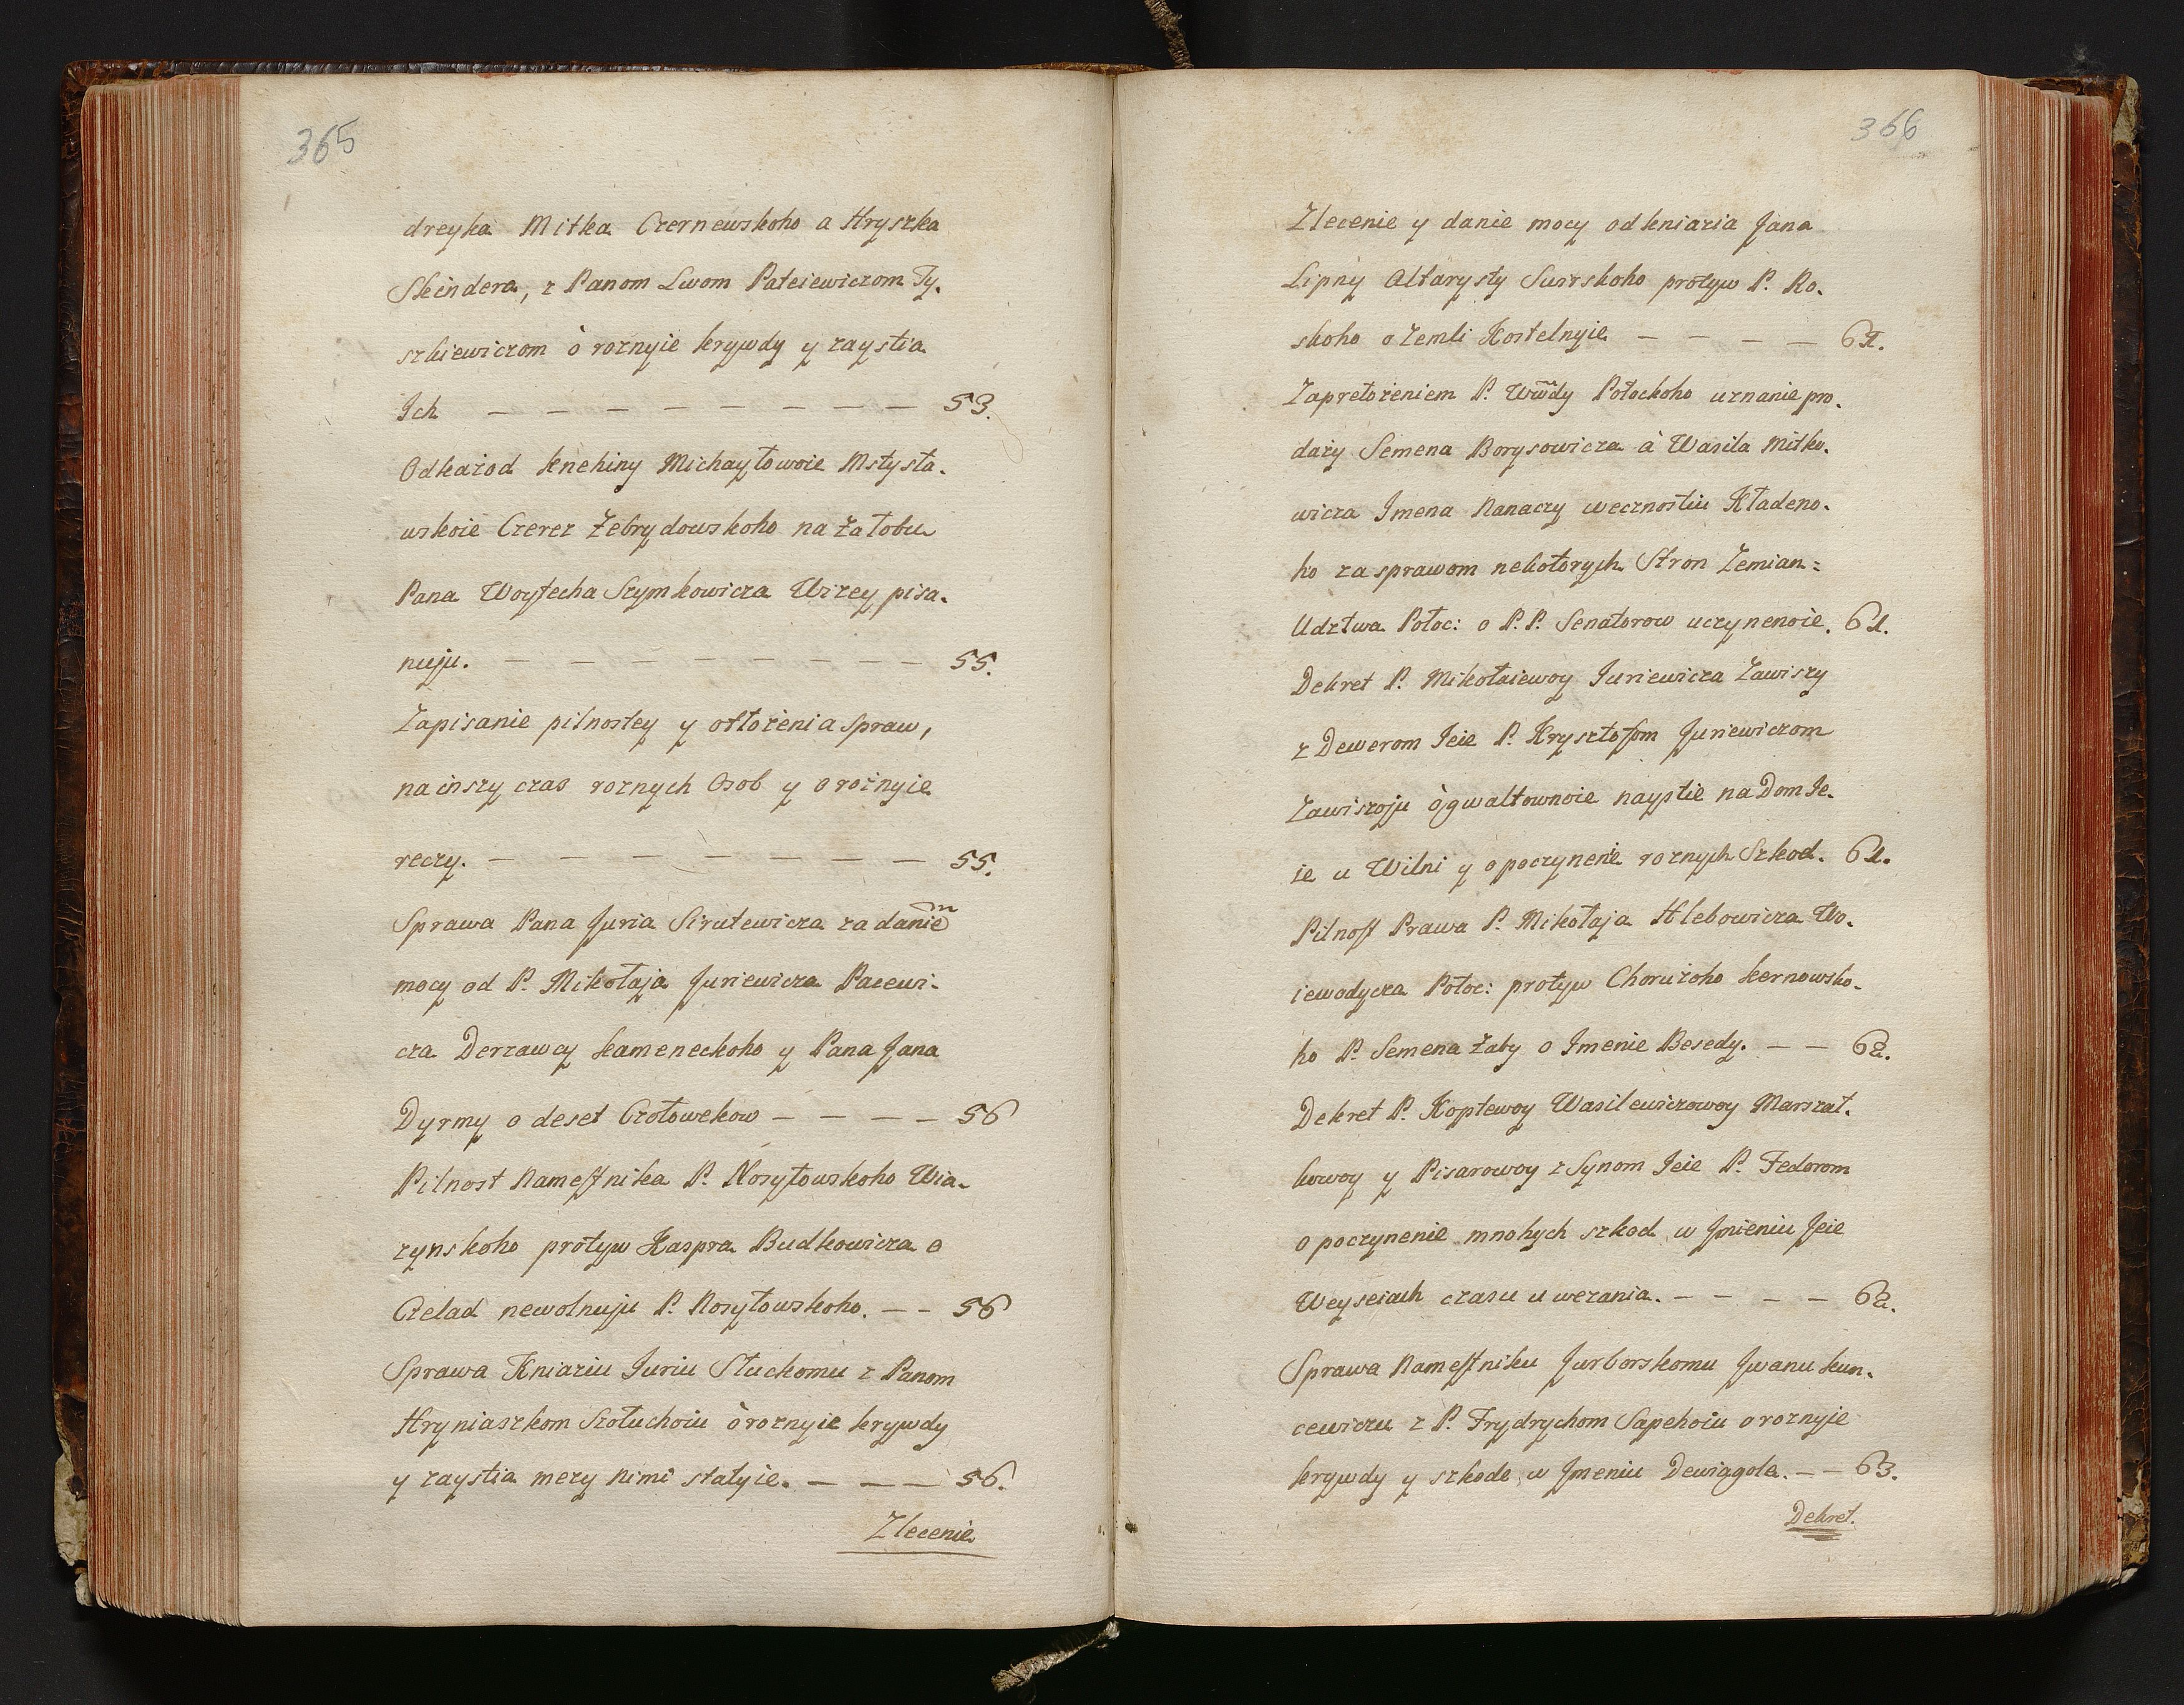 365
dreyka Mitka Czernewskoho a Hryszka
Skindera, z Panom Lwom Pateiewiczom Ty-
szkiewiczom ò roznyie krywdy y zaystia
Ich — — — — — — — — 53.
Odkazod knehiny Michayłowoie Mstysła-
wskoie Czerez Zebrydowskoho na załobu
Pana Woytecha Szymkowicza Wizey pisa-
nuju. — — — — — — — 55.
Zapisanie pilnostey y otłożenia spraw,
na inszy czas roznych Osob y o rożnyie
reczy. — — — — — — — 55.
Sprawa Pana Juria Sirutewicza za daniem
mocy od P. Mikołaja Juriewicza Pacewi-
cza Derzawcy kameneckoho y Pana Jana
Dyrmy o deset Czołowekow — — — — 56
Pilnost Namestnika P. Nosyłowskoho Wia-
zynskoho protyw Kaspra Budkowicza o
Czelad newolnuju P. Nosyłowskoho. — — 56
Sprawa Kniaziu Juriu Słuckomu z Panom
Hryniaszkom Szołuchoiu ò roznyie krywdy
y zaystia mezy nimi stałyie. — — — 56.
Zlecenie
366
Zlecenie y danie mocy od kniazia Jana
Lipny Altarysty Swirskoho protyw P. Ro-
skoho o Zemli Kostelnyie — — — — 61.
Zapretożeniem P. Wwdy Połockoho uznanie pro-
daży Semena Borysowicza à Wasila Mitko-
wicza Imena Nanaczy wecznostiu Kładeno-
ho za sprawom nekotorych Stron Zemian-
Udztwa Połoc: o P. P. Senatorow uczynenoie. 61.
Dekret P. Mikołaiewoy Juriewicza Zawiszy
z Dewerom Ieie P. Krysztofom Juriewiczom
Zawiszoju ò gwaltownoie naystie na Dom Ie-
ie u Wilni y o poczynenie roznych Szkod. 61.
Pilnost Prawa P. Mikołaja Hlebowicza Wo-
iewodycza Połoc: protyw Chorużoho kernowsko-
ho P. Semena Żaby o Imenie Besedy. — — 62.
Dekret P. Koptewoy Wasilewiczowoy Marszał-
kowoy y Pisarowoy z Synom Ieie P. Fedorom
o poczynenie mnohych szkod w Jmieniu Jeie
Weyseiach czasu uwezania. — — — — 62.
Sprawa Namestniku Jurborskomu Jwanu kun-
cewiczu z P. Frydrychom Sapehoiu o roznyie
krywdy y szkode w Jmeniu Dewiagole. — — 63.
Dekret.